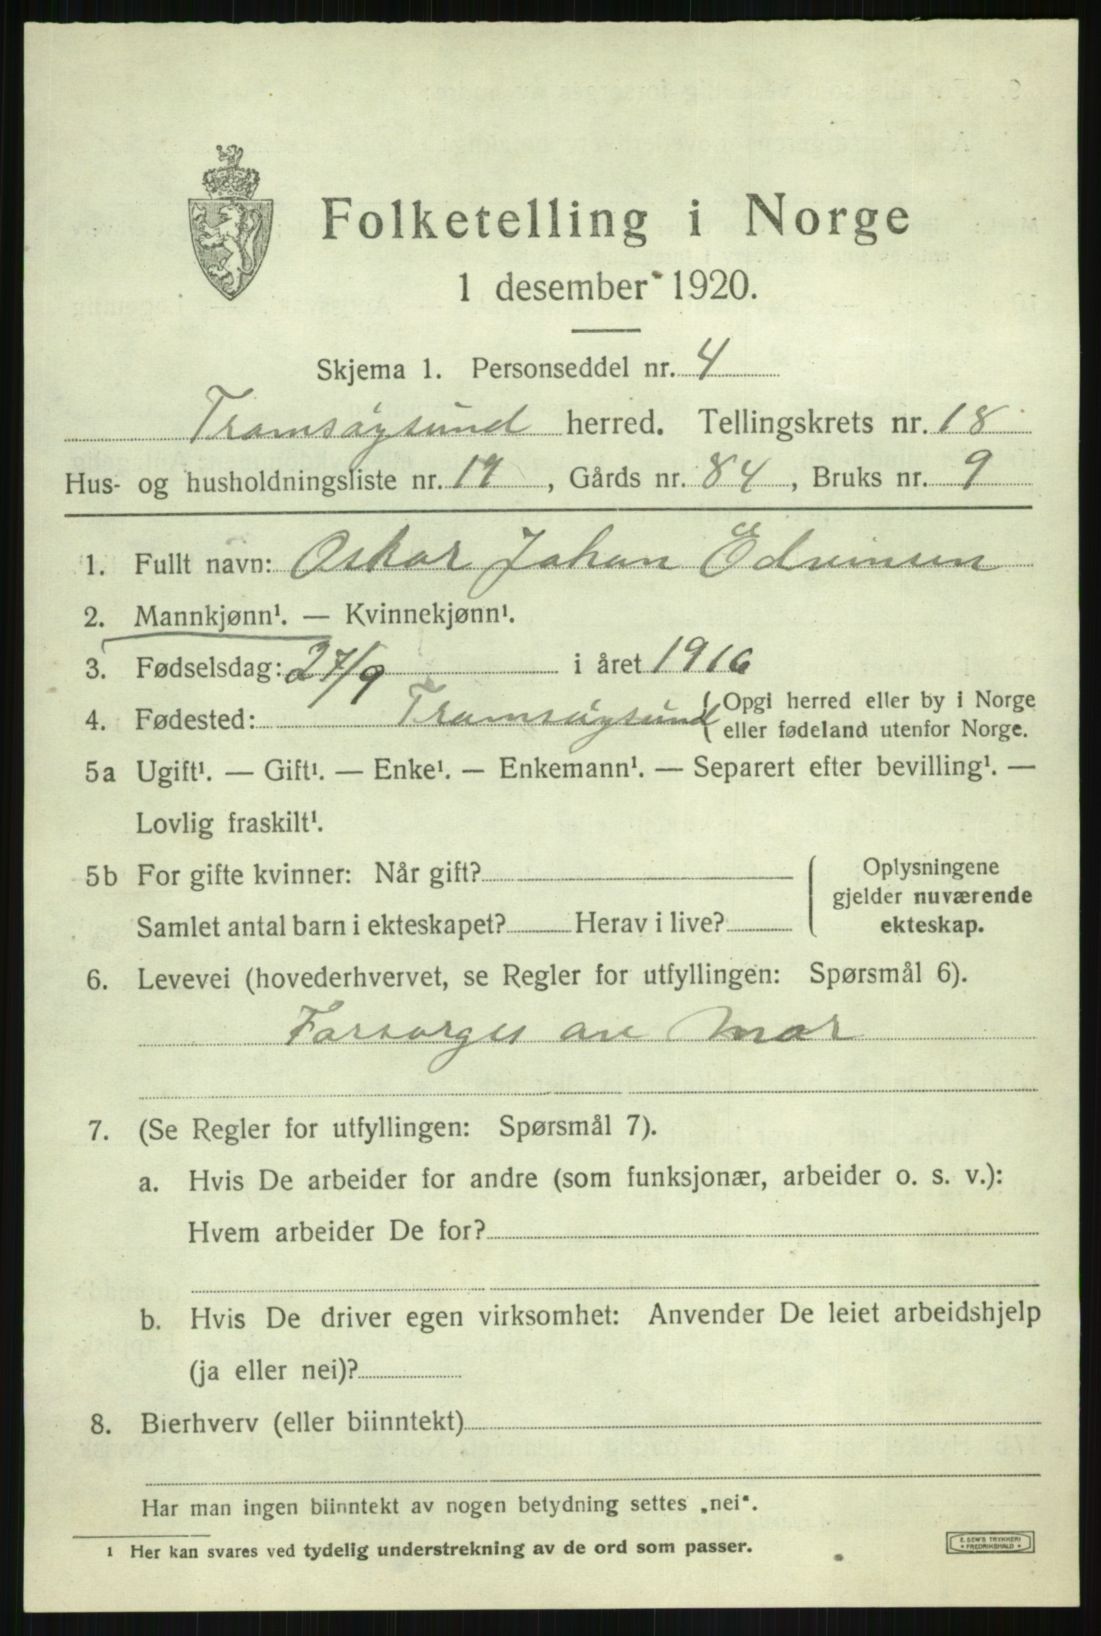 Folketelling i Norge
1 desember 1920.
Skjema 1. Personseddel nr. 4
Tromsøysund herred. Tellingskrets nr. 18
Hus- og husholdningsliste nr. 19, Gårds nr. 84, Bruks nr. 9
1. Fullt navn: Oskar Johan Edvinsen
2. Mannkjønn¹. — Kvinnekjønn¹.
3. Fødselsdag: 27/9 i året 1916
4. Fødested: Tromsøysund (Opgi herred eller by i Norge
eller fødeland utenfor Norge.
5a Ugift¹. — Gift¹. — Enke¹. — Enkemann¹. — Separert efter bevilling¹. —
Lovlig fraskilt¹.
5b For gifte kvinner: Når gift?
Samlet antal barn i ekteskapet? Herav i live?
Oplysningene
gjelder nuværende
ekteskap.
6. Levevei (hovederhvervet, se Regler for utfyllingen: Spørsmål 6).
Forsorges ave Mor
7. (Se Regler for utfyllingen: Spørsmål 7).
a. Hvis De arbeider for andre (som funksjonær, arbeider o. s. v.):
Hvem arbeider De for?
b. Hvis De driver egen virksomhet: Anvender De leiet arbeidshjelp
(ja eller nei)?
8. Bierhverv (eller biinntekt)
Har man ingen biinntekt av nogen betydning settes „nei“.
¹ Her kan svares ved tydelig understrekning av de ord som passer.
E. SEM'S TRYKKERI
• FREDRIKSHALD •